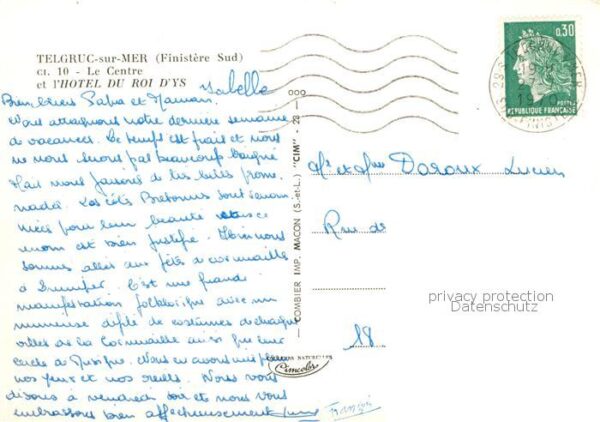 TELGRUC-sur-MER (Finistère Sud)
CL. 10 - Le Centre
et l'HOTEL DU ROI D'YS
Isabelle
Bien chers Papa et Maman,
Nous attaquons notre dernière semaine
de vacances. Le temps est frais et nous
ne nous avons pas beaucoup baigné
Mais nous faisons de très belles prome
nades. Les étés Bretonnes sont renom
mées pour leur beauté et ce
nom est bien justifié. Hier nous
sommes allés aux fêtes de cornouaille
à Quimper. C'est une grande
manifestation folklorique avec un
immense défilé de costumes de chaque
villes de la Cornouaille ainsi que leur
cercle de Musique. Nous en avons mis plein
nos yeux et nos oreilles. Nous vous
disons à vendredi soir et nous vous
embrassons bien affectueusement
François
COMBIER IMP. MACON (S.-et-L.) "CIM"
Cimcolor
0,30
POSTES
REPUBLIQUE FRANÇAISE
Mr et Mme Doroux Lucien
Rue de
18
privacy protection
Datenschutz